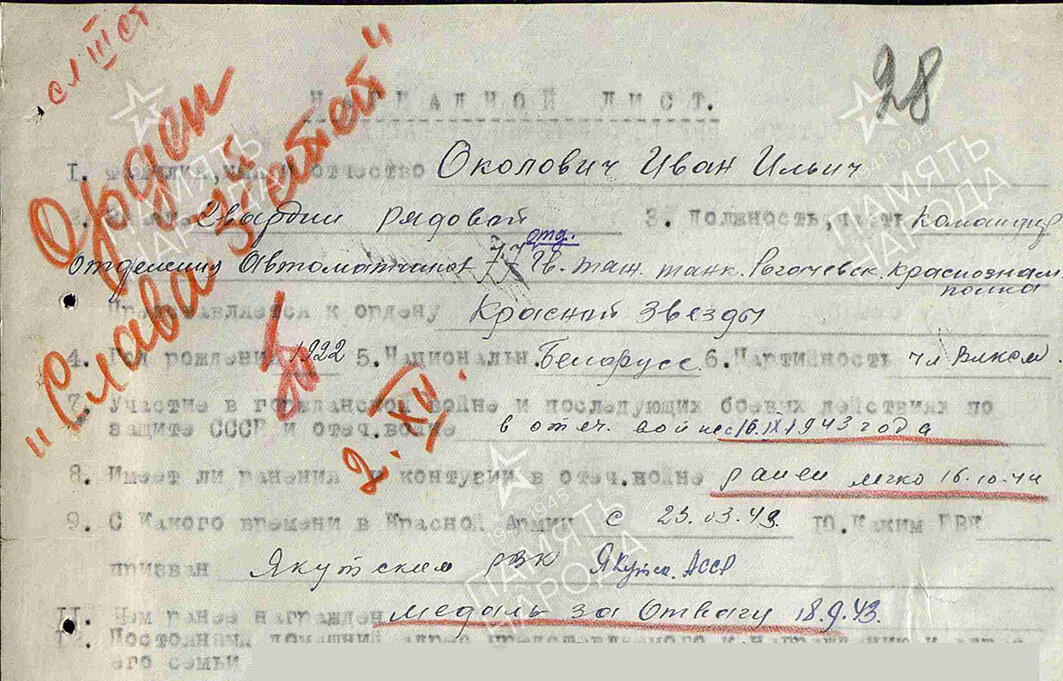 сл III ст
Орден
"Слава 3 степей"
2. XII.
28
НАГРАДНОЙ ЛИСТ.
1. Фамилия, имя и отчество Околович Иван Ильич
2. Звание Гвардии рядовой 3. Должность, часть командир
отделения автоматчиков 77 отд. Гв. тяж. танк. Рогачевск. краснознам.
полка
Представляется к ордену Красной Звезды
4. Год рождения 1922 5. Национальн. Белорусс. 6. Партийность чл ВЛКСМ
7. Участие в гражданской войне и последующих боевых действиях по
защите СССР и отеч.войне в отеч. войне с 16.IX 1943 года
8. Имеет ли ранения и контузии в отеч.войне ранен легко 16.10.44
9. С какого времени в Красной Армии с 23.03.43. 10. Каким РВК
призван Якутским РВК Якутск. АССР
11. Чем ранее награжден медаль за Отвагу 18.9.43.
12. Постоянный домашний адрес представляемого к награждению и адрес
его семьи
ПАМЯТЬ НАРОДА
1941-1945
ПАМЯТЬ НАРОДА
1941-1945
ПАМЯТЬ НАРОДА